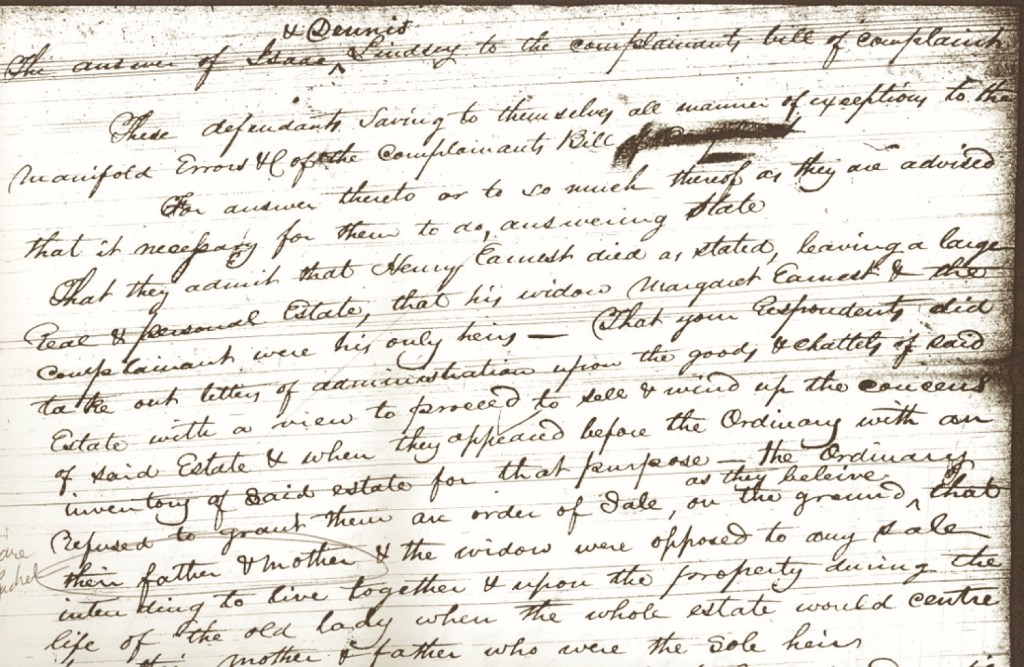 & Dennis
The answer of Isaac ^ Lindsey to the complainants bill of complaint
These defendants saving to themselves all manner of exceptions to the
manifold Errors &C of the Complainants Bill
For answer thereto or to so much thereof as they are advised
that it necessary for them to do, answering State
That they admit that Henry Earnest died as stated, leaving a large
Real & personal Estate, that his widow Margaret Earnest & the
complainant were his only heirs — That your Respondents did
take out letters of administration upon the goods & chattels of said
Estate with a view to proceed to sell & wind up the concerns
of said Estate & when they appeared before the Ordinary with an
inventory of said estate for that purpose — the Ordinary
as they beleive
Refused to grant them an order of Sale, on the ground ^ that
their father & mother & the widow were opposed to any sale
intending to live together & upon the property during the
life of the old lady when the whole estate would centre
mother & father who were the sole heirs